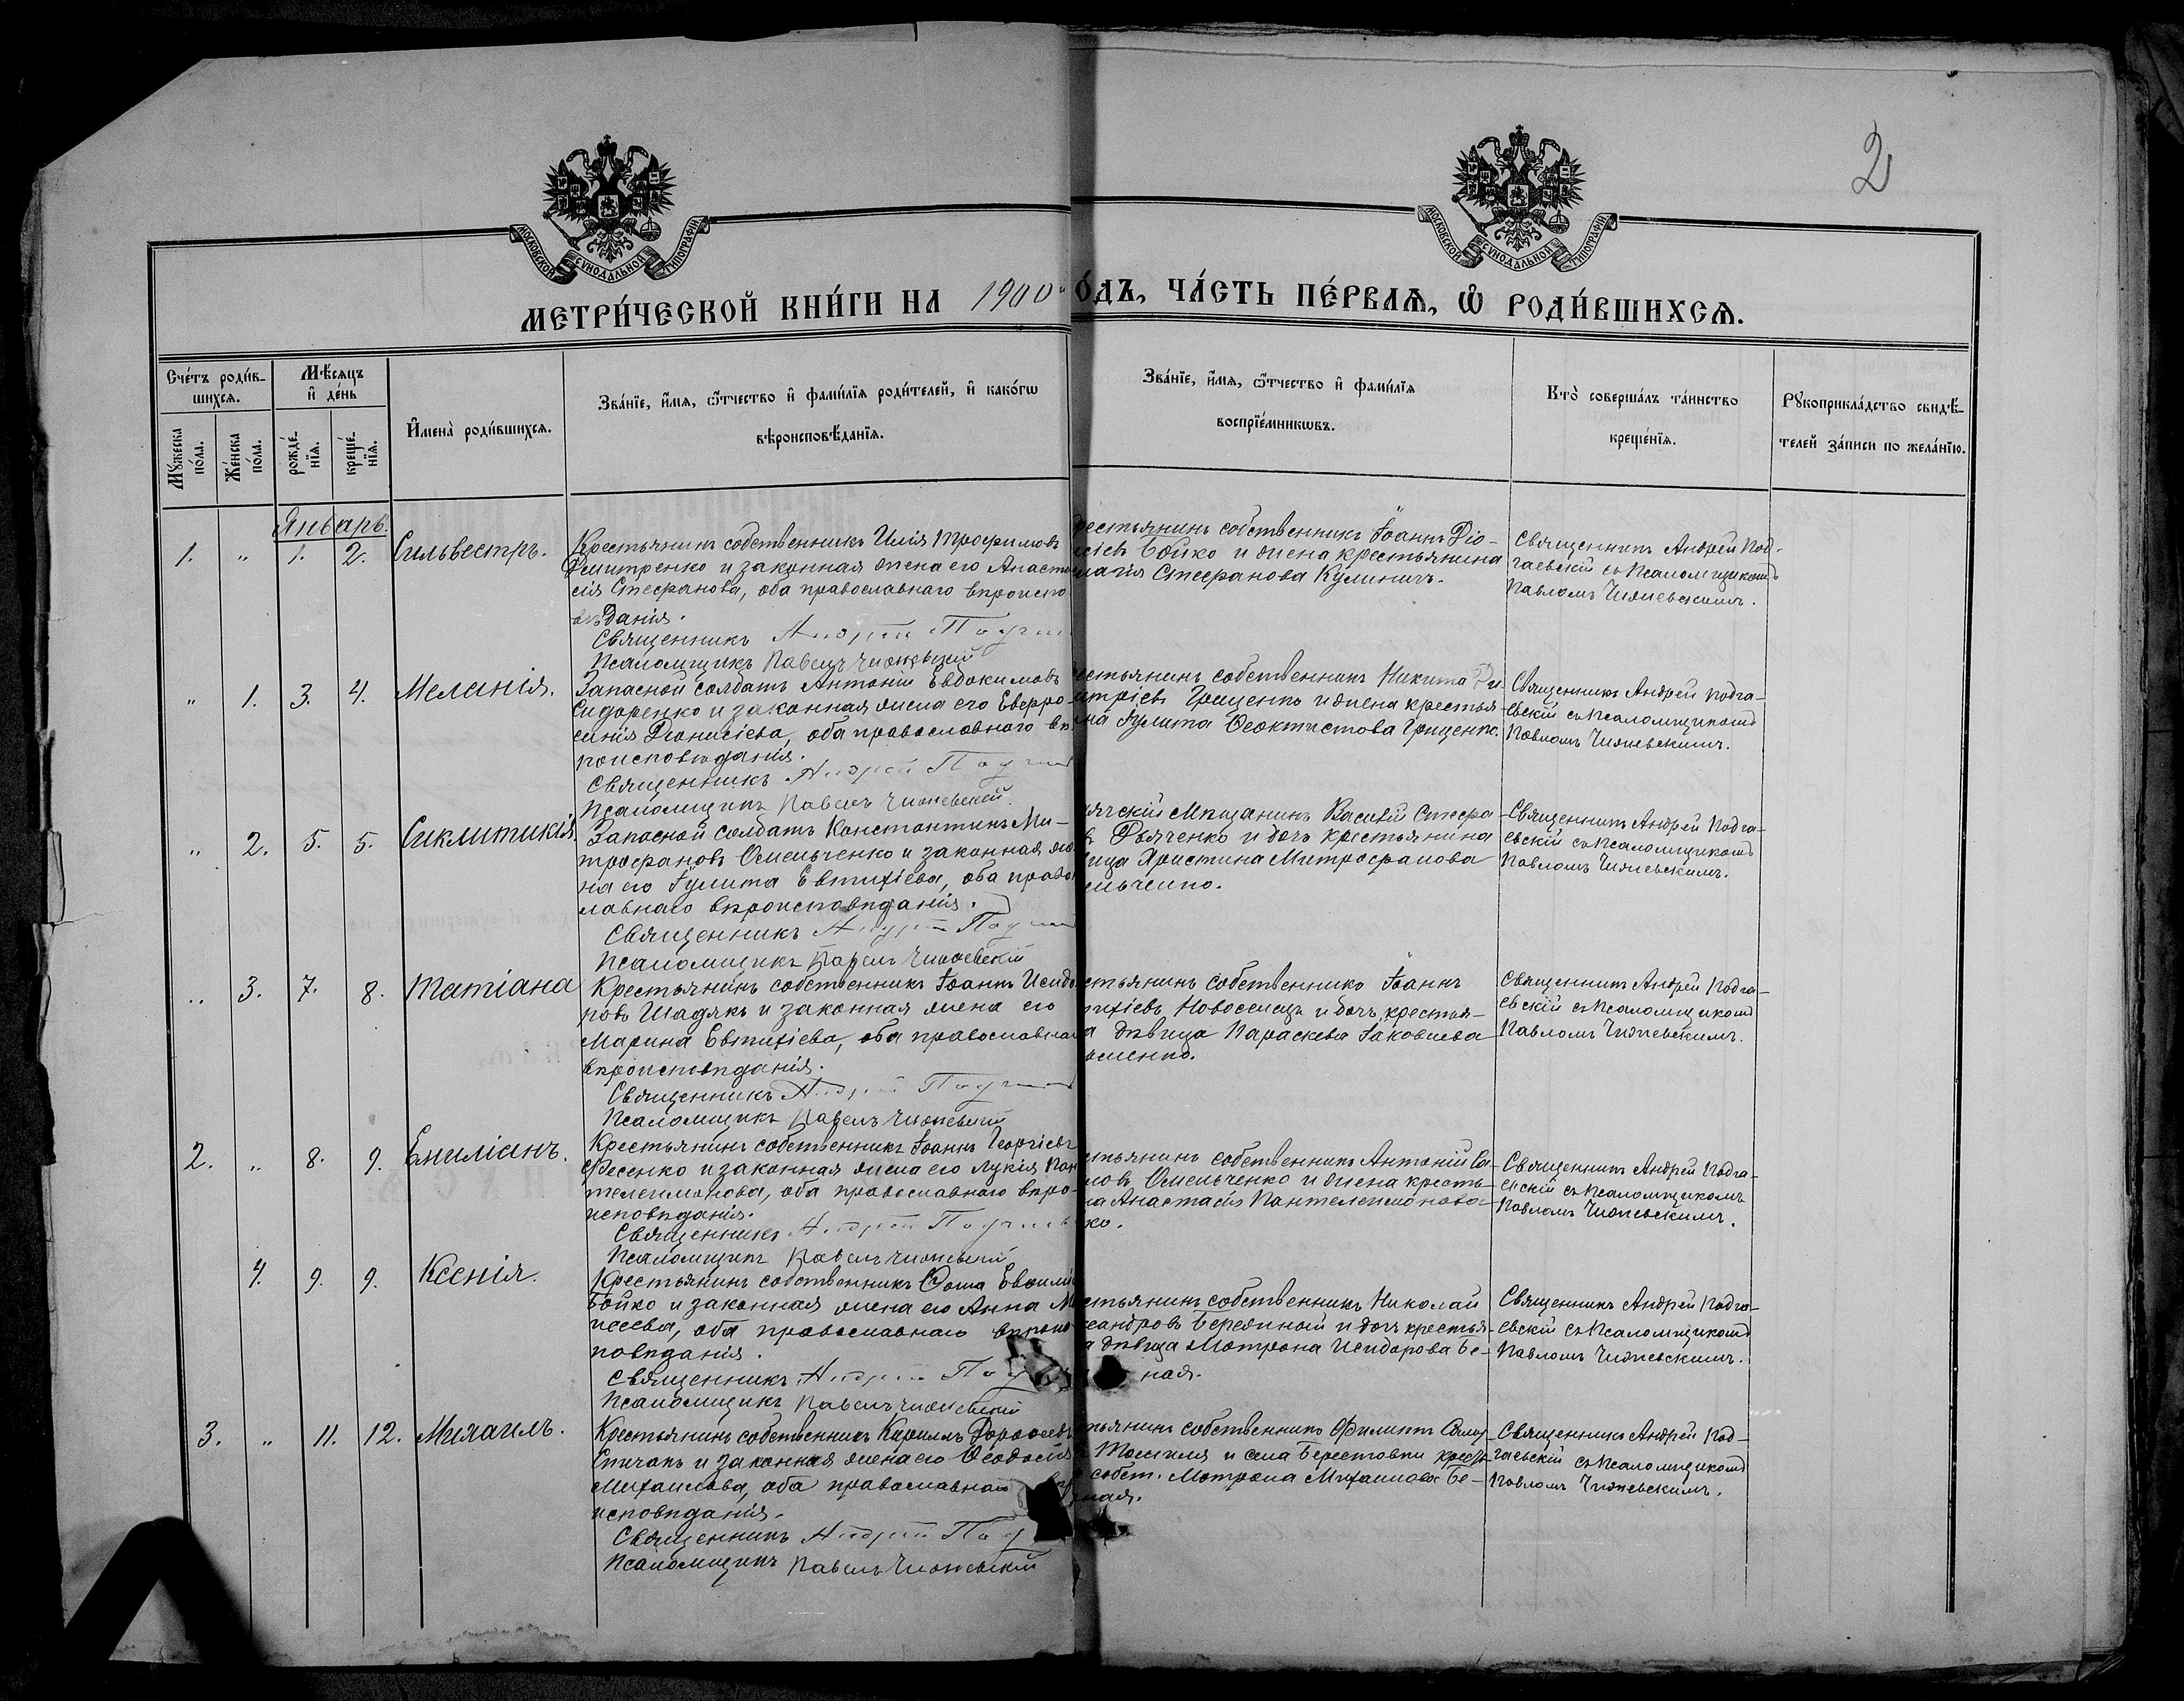 2
МОСКОВСКОЙ СУНОДАЛЬНОЙ ТИПОГРАФІИ
МОСКОВСКОЙ СУНОДАЛЬНОЙ ТИПОГРАФІИ
МЕТРИ́ЧЕСКОЙ КНИ́ГИ НА 1900 О́ДЪ, ЧА́СТЬ ПЕ́РВАѦ, Ѿ РОДИ́ВШИХСѦ.
Сче́тъ роди́в-
шихсѧ.
Мѣ́сѧцъ
и҆ де́нь
И҆мена̀ роди́вшихсѧ.
Зва́нїе, и҆́мѧ, ѻ҆́тчество и҆ фами́лїѧ роди́телей, и҆ како́гѡ
вѣроисповѣ́данїѧ.
Зва́нїе, и҆́мѧ, ѻ҆́тчество и҆ фами́лїѧ
воспрїе́мникѡвъ.
Кто̀ соверша́лъ та́инство
креще́нїѧ.
Рꙋкоприкла́дство свидѣ́-
телей за́писи по жела́нїю.
Мꙋ́жеска
по́ла.
Же́нска
по́ла.
рожде́-
нїѧ.
креще́-
нїѧ.
Январь.
1. " 1. 2. Сильвестръ.
Крестьянинъ собственникъ Илія Трофимовъ
Дмитренко и законная жена его Анаста
сія Стефанова, оба православнаго вѣроиспо
вѣданія.
Священникъ Андрей
Псаломщикъ Павелъ Чижевскій
рестьянинъ собственникъ Іоаннъ Діо-
сіевъ Бойко и жена крестьянина
лагія Стефанова Кулиничъ.
Священникъ Андрей Под-
гаевскій съ Псаломщикомъ
Павломъ Чижевскимъ.
" 1. 3. 4. Меланія.
Запасной солдатъ Антоній Евдокимовъ
Сидоренко и законная жена его Евфро-
синія Діонисіева, оба православнаго вѣ
роисповѣданія.
Священникъ Андрей
Псаломщикъ Павелъ Чижевскій.
естьянинъ собственникъ Никита Ди-
итріевъ Грищенко и жена крестья-
на Іулита Феоктистова Грищенко.
Священникъ Андрей Подга-
евскій съ Псаломщикомъ
Павломъ Чижевскимъ.
" 2. 5. 5. Сиклитикія.
Запасной солдатъ Константинъ Ми-
трофановъ Омельченко и законная же
на его Іулита Евтихіева, оба право
лавнаго вѣроисповѣданія.
Священникъ Андрей
Псаломщикъ Павелъ Чижевскій
ячскій Мѣщанинъ Василій Стефа-
ъ Дьяченко и дочь крестьянина
вица Христина Митрофанова
ельченко.
Священникъ Андрей Подга-
евскій съ Псаломщикомъ
Павломъ Чижевскимъ.
" 3. 7. 8. Татіана
Крестьянинъ собственникъ Іоаннъ Исидо
ровъ Шадякъ и законная жена его
Марина Евтихіева, оба православна
вѣроисповѣданія.
Священникъ Андрей
Псаломщикъ Павелъ Чижевскій
стьянинъ собственникъ Іоаннъ
тихіевъ Новоселецъ и дочь крестья-
а дѣвица Параскева Іаковлева
оменко.
Священникъ Андрей Подга-
евскій съ Псаломщикомъ
Павломъ Чижевскимъ.
2. " 8. 9. Емиліанъ.
Крестьянинъ собственникъ Іоаннъ Георгіевъ
Фесенко и законная жена его Лукія Пан
телеимонова, оба православнаго вѣро-
исповѣданія.
Священникъ Андрей
Псаломщикъ Павелъ Чижевскій
стьянинъ собственникъ Антоній Са-
ловъ Омельченко и жена кресть-
на Анастасія Пантелеимонова
ко.
Священникъ Андрей Подга-
евскій съ Псаломщикомъ
Павломъ Чижевскимъ.
4. 9. 9. Ксенія.
Крестьянинъ собственникъ Фома Евфимі
Бойко и законная жена его Анна М
исеева, оба православнаго вѣроис
повѣданія.
Священникъ Андрей
Псаломщикъ Павелъ Чижевскій
стьянинъ собственникъ Николай
сандровъ Бережный и дочь крестья-
а дѣвица Мотрона Исидорова Бе-
ная.
Священникъ Андрей Подга-
евскій съ Псаломщикомъ
Павломъ Чижевскимъ.
3. " 11. 12. Михаилъ.
Крестьянинъ собственникъ Кириллъ Дорофеевъ
Спичакъ и законная жена его Феодосія
Михаилова, оба православнаго
исповѣданія.
Священникъ Андрей
Псаломщикъ Павелъ Чижевскій
тьянинъ собственникъ Филиппъ
и села Берестовки крест
собст. Мотрона Михаилова Бе-
ная.
Священникъ Андрей Под-
гаевскій съ Псаломщикомъ
Павломъ Чижевскимъ.